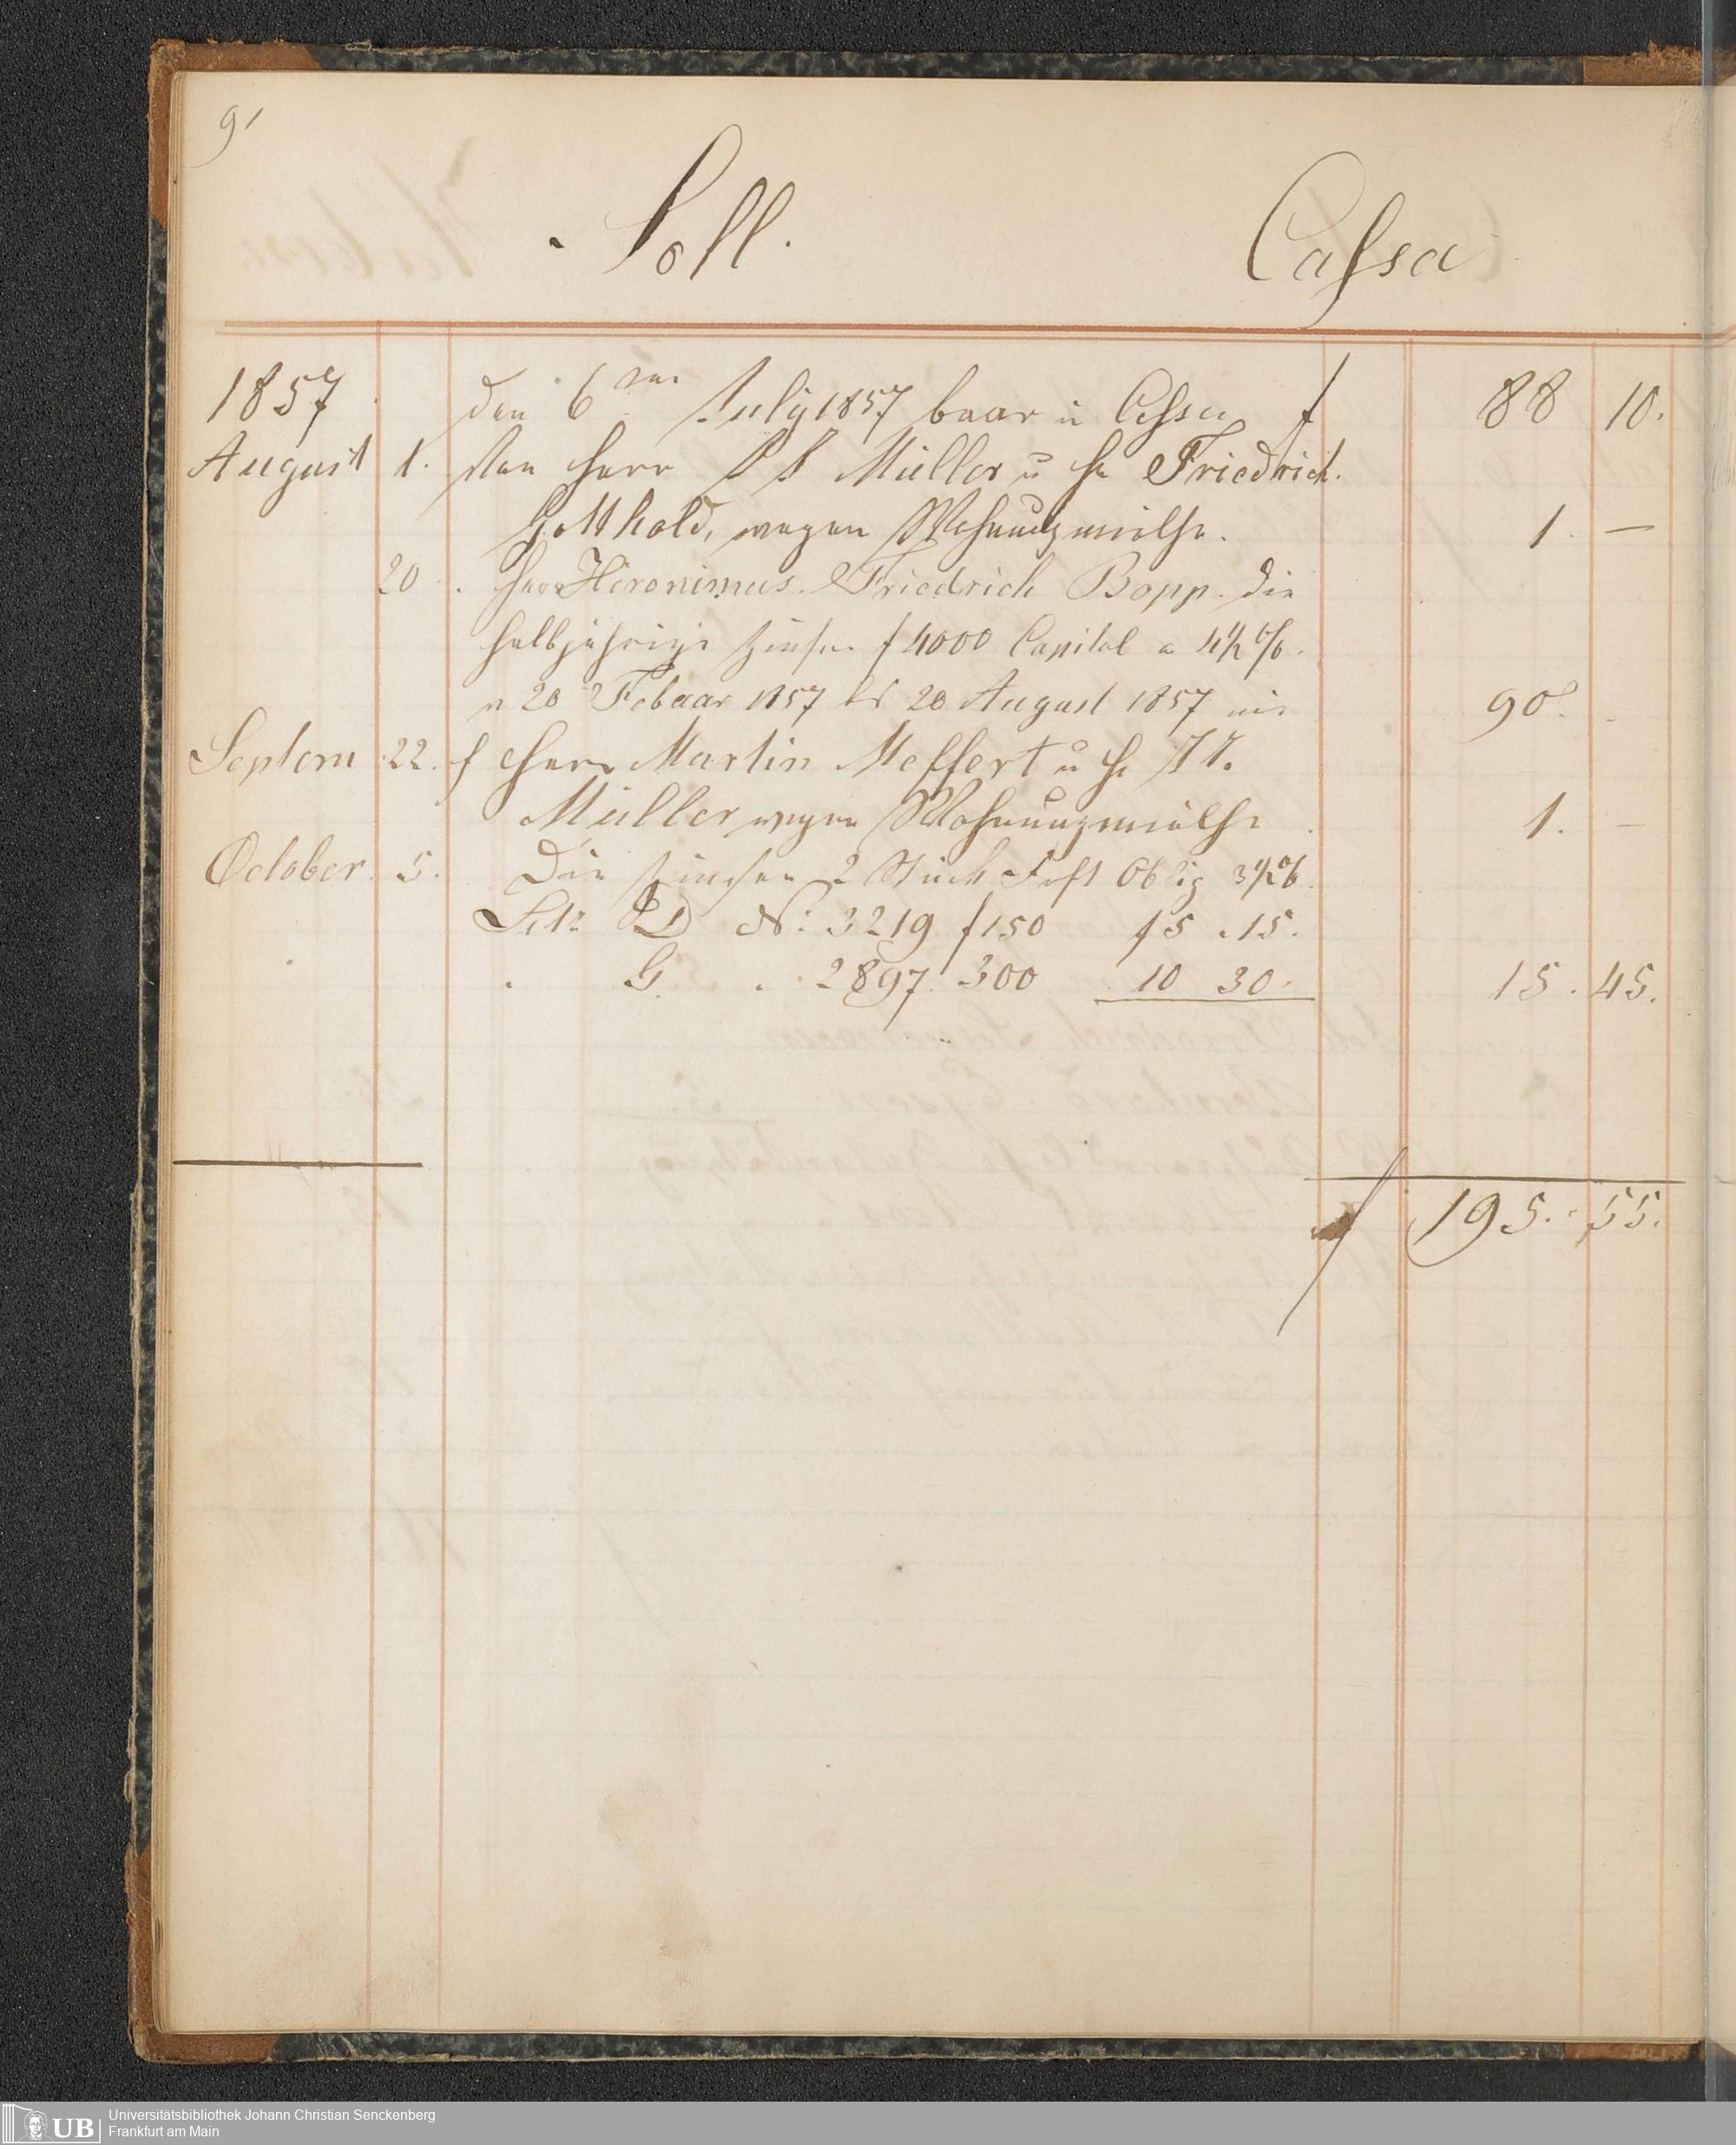 91
Soll. Cassa
1857 den 6ten July 1857 baar in Cassa f 88 10.
August 1. Von Herr Müller u H Friedrich
Gotthold, wegen Wohnungsmiethe. 1. —
20. Herr Hieronimus Friedrich Bopp. die
halbjährige Zinsen f 4000 Capital a 4½%.
v 20 Febuar 1857 bis 20 August 1857 mit 90.
Septem 22. f Herrn Martin Meffert u H
Müller wegen Wohnungsmiethe 1. —
October. 5. Die Zinsen 2 Stück Oblig 3½%.
Litr D No: 3219 f 150 f 5. 15.
G. 2897. 300 10 30. 15. 45.
f 195. 55.
UB Universitätsbibliothek Johann Christian Senckenberg
Frankfurt am Main